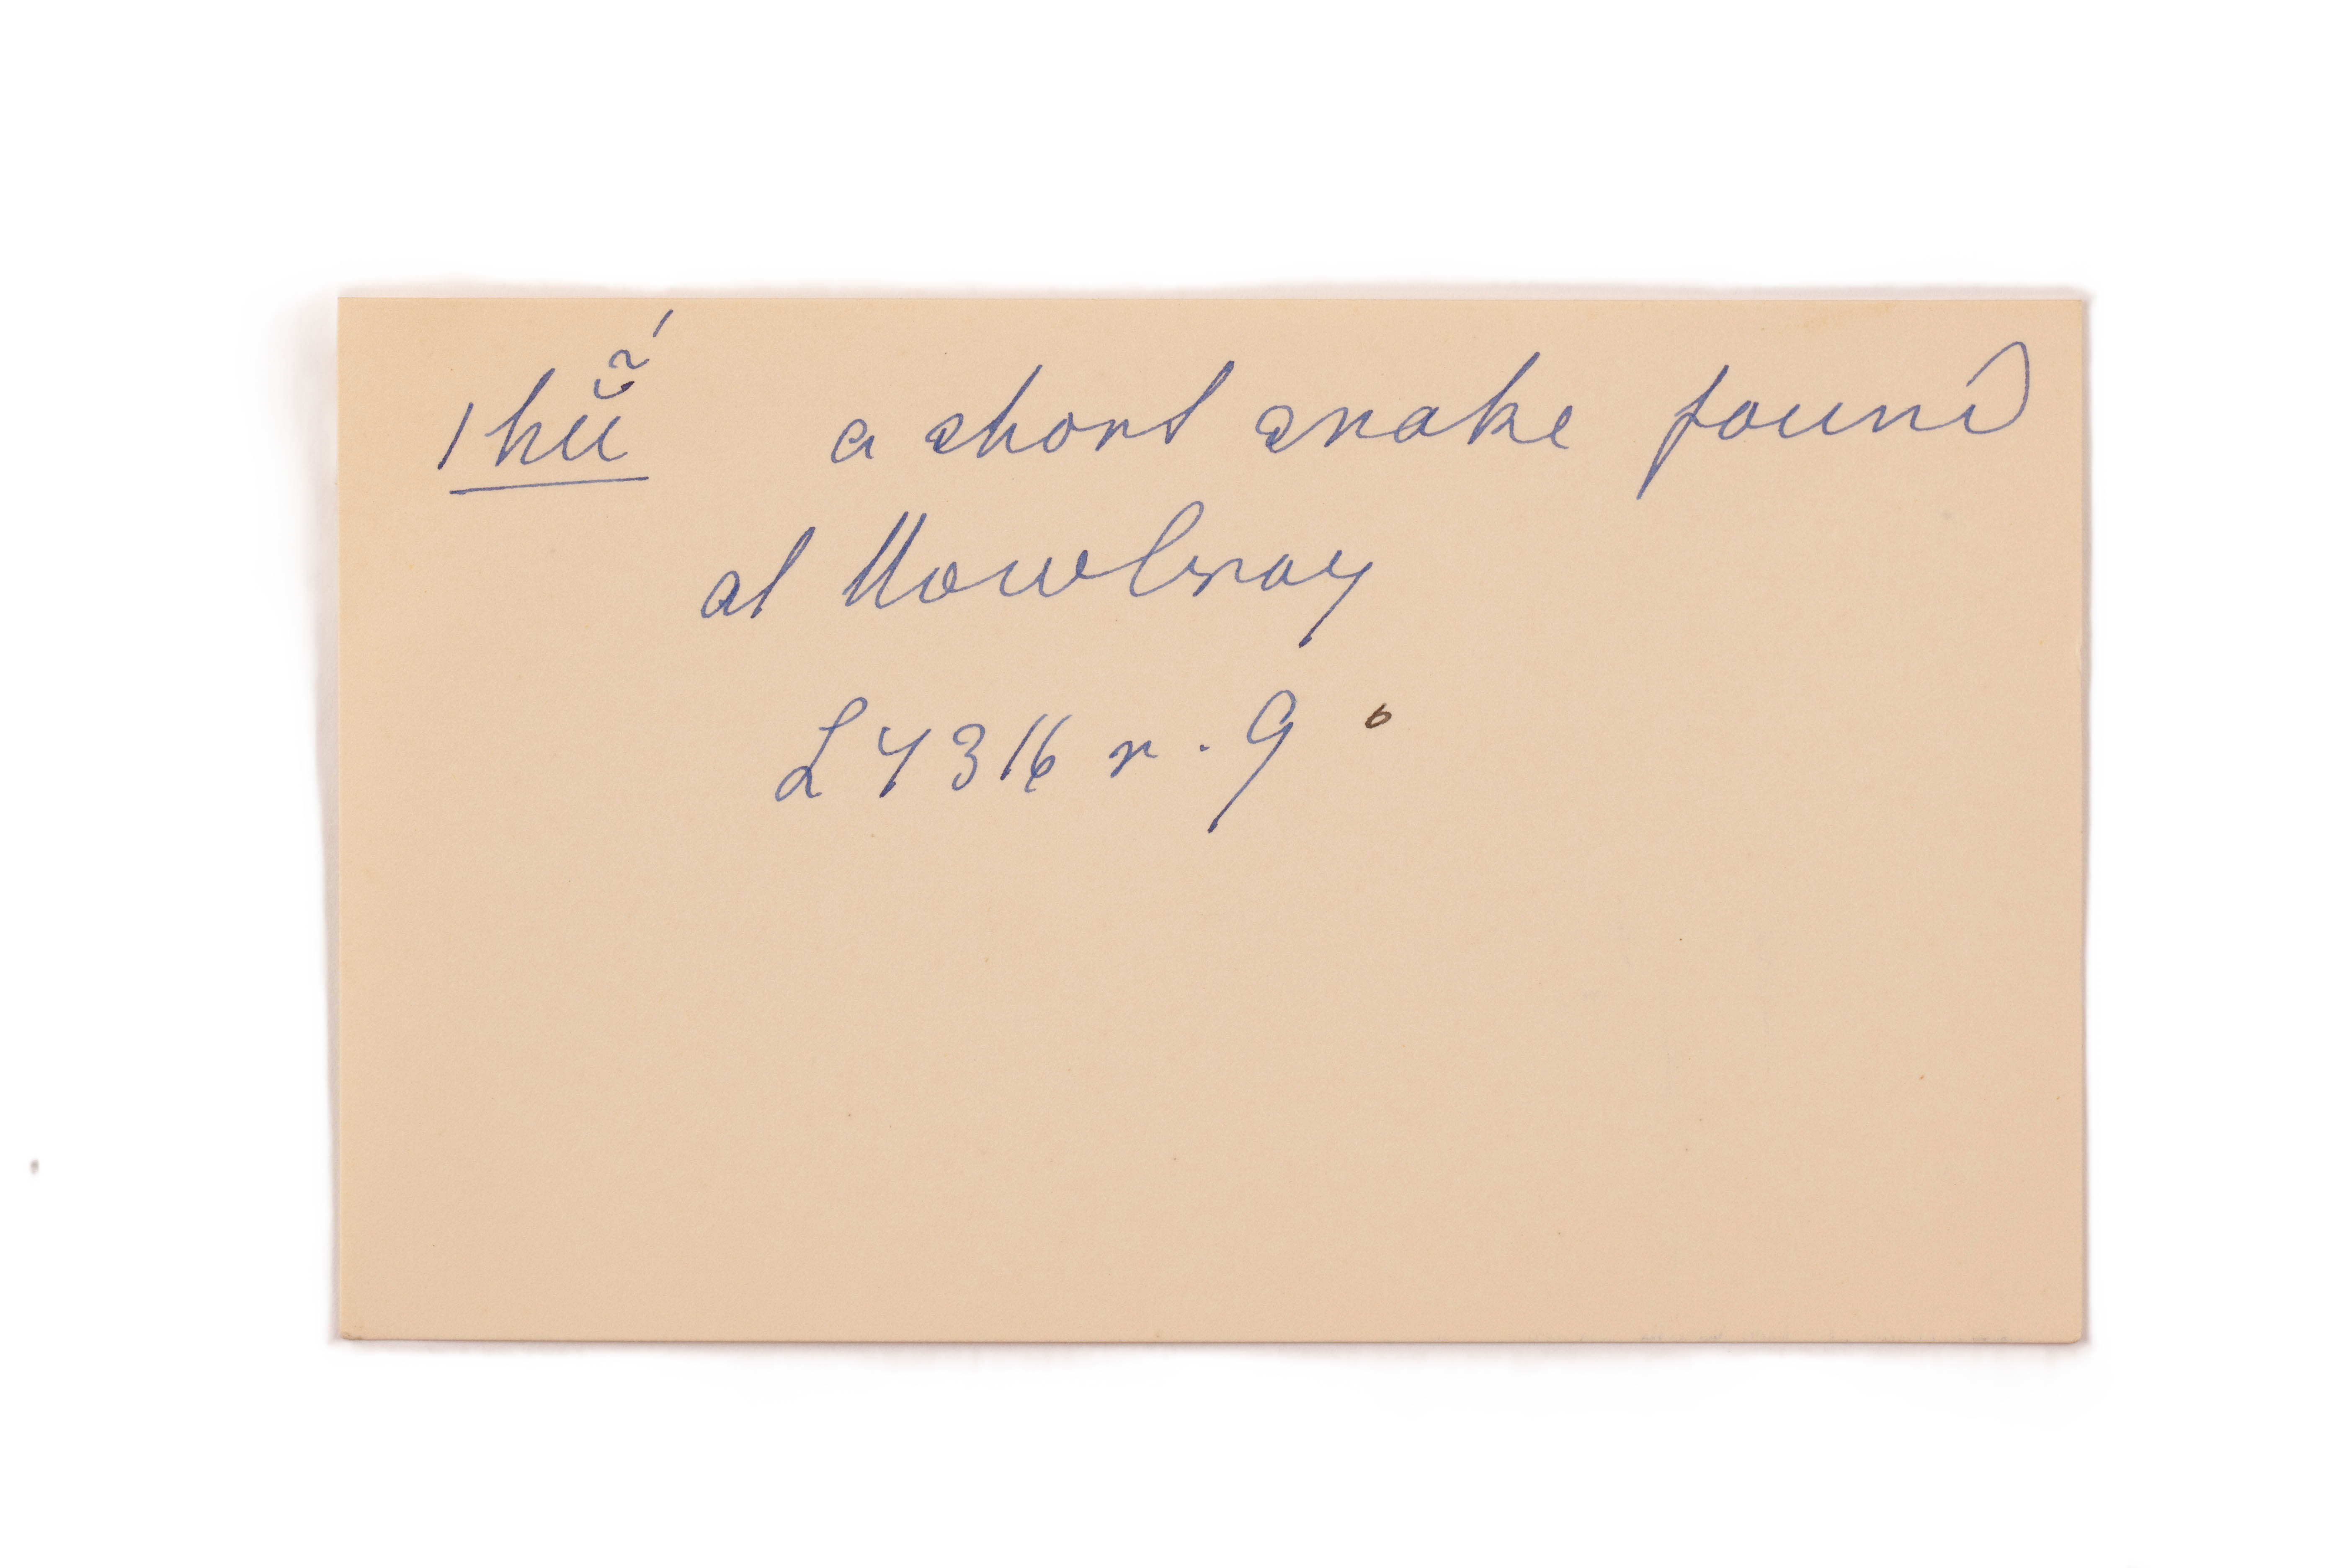 ǀhṵ̌̃́ a short snake found
at Nouwlway
L 4316 r. 9